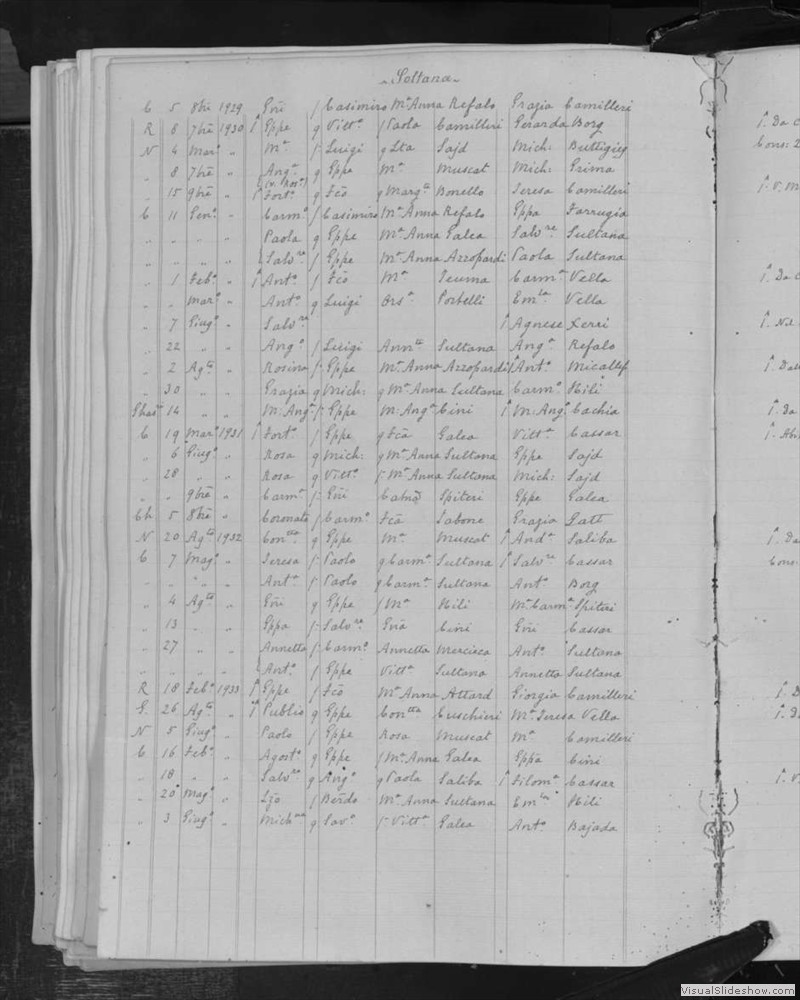 Soltana
C 5 8bre 1929 Gñi f Casimiro Mª Anna Refalo Grazia Camilleri
R 6 7bre 1930 1 Eppe g Vittº f Paola Camilleri Gerarda Borg
N 4 Marº " Mª f Luigi g Lta Sajd Mich: Buttigieg
" 8 7bre " Angª g Eppe Mª Muscat Mich: Grima
" 15 9bre " 1 Fortº g Fcõ g Margta Bonello Teresa Camilleri
C 11 Genº " Carmº f Casimiro Mª Anna Refalo Eppa Farrugia
" " " " Paola g Eppe Mª Anna Galea Salvre Sultana
" " " " Salvra f Eppe Mª Anna Azzopardi Paola Sultana
" 1 Febº " 1 Antº f Fcõ Mª Teuma Carmª Vella
" " Marº " Antº g Luigi Orsª Portelli Emlª Vella
" 7 Giugº " Salvre 1 Agnese Xerri
" 22 " " Angº f Luigi Annta Sultana Angª Refalo
" 2 Agto " Rosina f Eppe Mª Anna Azzopardi 1 Antº Micallef
" 30 " " Grazia g Mich: g Mª Anna Sultana Carmº Hili
Ghas 14 " " M: Angª f Eppe M: Angª Cini 1 M: Angº Cachia
C 19 Marº 1931 1 Fortº f Eppe g Fcã Galea Vittª Cassar
" 6 Giugº " Rosa g Mich: g Mª Anna Sultana Eppe Sajd
" 28 " " Rosa g Vittº f Mª Anna Sultana Mich: Sajd
" " 9bre " Carmª f Gñi Catnã Spiteri Eppe Galea
Ch 5 8bre " Coronato f Carmº Fcã Tabone Grazia Gatt
N 20 Agto 1932 Contta g Eppe Mª Muscat 1 Andª Saliba
C 7 Magº " Teresa f Paolo g Carmª Sultana 1 Salvre Cassar
" " " " Antª f Paolo g Carmª Sultana Antº Borg
" 4 Agto " Gñi g Eppe f Mª Hili Mª Carmª Spiteri
" 13 " " Eppa f Salvre Gñã Cini Gñi Cassar
" 27 " " Annetta f Carmº Annetta Mercieca Antº Sultana
" " " " Antº f Eppe Vittª Sultana Annetta Sultana
R 18 Febº 1933 1 Eppe f Fcõ Mª Anna Attard Giorgia Camilleri
G. 26 Agto " 1 Publio g Eppe Contta Cuschieri Mª Teresa Vella
N 5 Giugº " Paolo f Eppe Rosa Muscat Mª Camilleri
C 16 Febº " Agostº g Eppe f Mª Anna Galea Eppa Cini
" 18 " " Salvre g Angº g Paola Saliba 1 Filomª Cassar
" 20 Magº " Lzo f Berdo Mª Anna Sultana Emlª Hili
" 3 Giugº " Michna g Savº f Vittª Galea Antº Bajada
VisualSlideshow.com